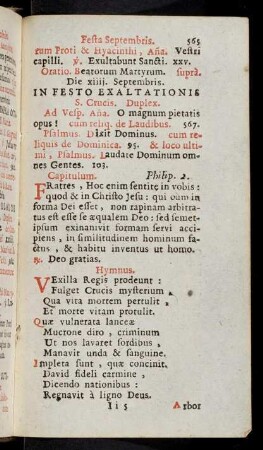 Festa Septembris. 565
rum Proti & Hyacinthi, Aña. Vestri
capilli. ℣. Exultabunt Sancti. xxv.
Oratio. Beatorum Martyrum. suprà.
Die xiiij. Septembris.
IN FESTO EXALTATIONIS
S. Crucis. Duplex.
Ad Vesp. Aña. O magnum pietatis
opus! cum reliq. de Laudibus. 567.
Psalmus. Dixit Dominus. cum re-
liquis de Dominica. 95. & loco ulti-
mi, Psalmus. Laudate Dominum om-
nes Gentes. 103.
Capitulum. Philip. 2.
FRatres, Hoc enim sentite in vobis:
quod & in Christo Jesu: qui cùm in
forma Dei esset, non rapinam arbitra-
tus est esse se æqualem Deo: sed semet-
ipsum exinanivit formam servi acci-
piens, in similitudinem hominum fa-
ctus, & habitu inventus ut homo.
℟. Deo gratias.
Hymnus.
VExilla Regis prodeunt:
Fulget Crucis mysterium,
Qua vita mortem pertulit,
Et morte vitam protulit.
Quæ vulnerata lanceæ
Mucrone diro, criminum
Ut nos lavaret sordibus,
Manavit unda & sanguine.
Impleta sunt, quæ concinit,
David fideli carmine,
Dicendo nationibus:
Regnavit à ligno Deus.
I i 5 Arbor